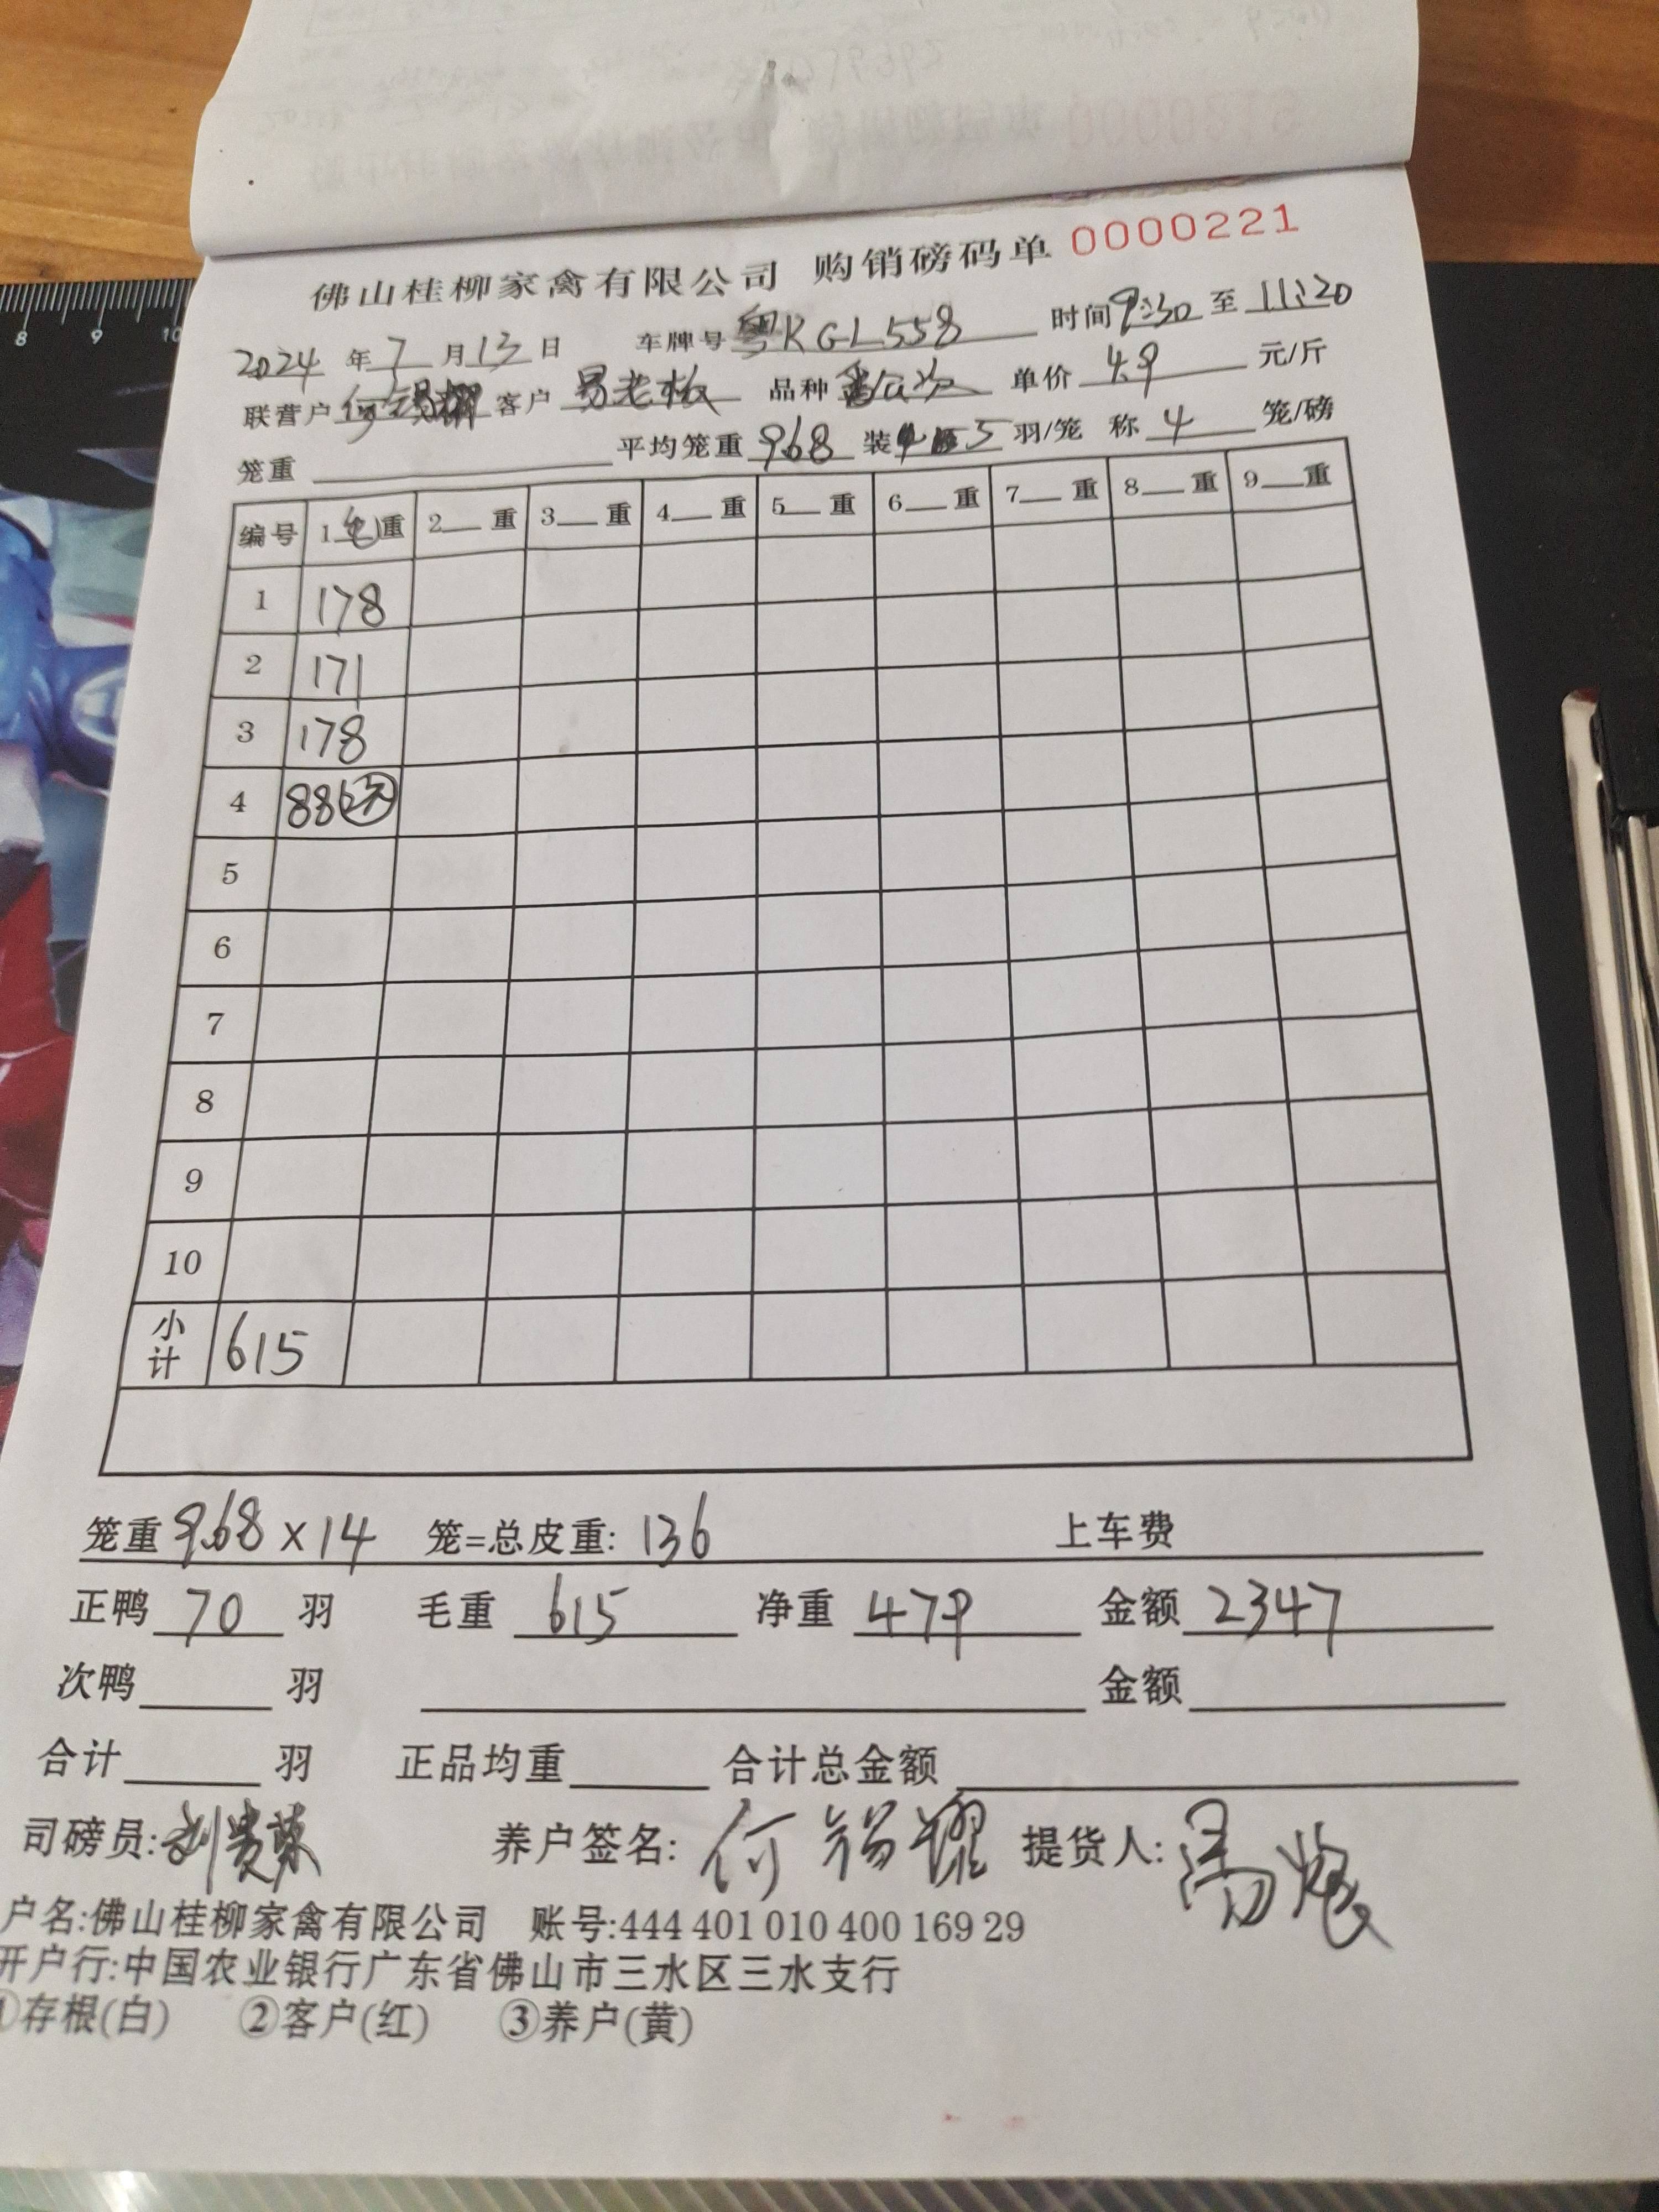 佛山桂柳家禽有限公司 购销磅码单 0000221
2024 年 7 月 13 日 车牌号 粤KGL558 时间 9:30 至 11:20
联营户 何锡耀 客户 易老板 品种 番公次 单价 4.9 元/斤
笼重 平均笼重 9.68 装 5 羽/笼 称 4 笼/磅
编号 1 毛 重 2 重 3 重 4 重 5 重 6 重 7 重 8 重 9 重
1 178
2 171
3 178
4 88
5
6
7
8
9
10
小计 615
笼重 9.68 × 14 笼=总皮重: 136 上车费
正鸭 70 羽 毛重 615 净重 479 金额 2347
次鸭 羽 金额
合计 羽 正品均重 合计总金额
司磅员: 养户签名: 何锡耀 提货人:
户名:佛山桂柳家禽有限公司 账号:444 401 010 400 169 29
开户行:中国农业银行广东省佛山市三水区三水支行
①存根(白) ②客户(红) ③养户(黄)
8 9 10